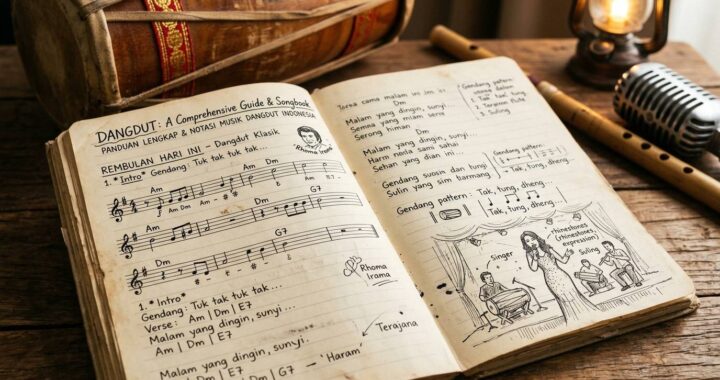 DANGDUT: A Comprehensive Guide & Songbook
PANDUAN LENGKAP & NOTASI MUSIK DANGDUT INDONESIA
REMBULAN HARI INI, - Dangdut Klasik
'Rhoma Irama
1. *Intro* Gendang: Tuk tak tuk tak...
Am Am Dm
Am Dm G7
Dm G7
Rhoma
Irama
1. *Intro*
Gendang: Tuk tak tuk tak...
Verse: Am | Dm | E7
Malam yang dingin, sunyi...
Am | Dm | E7
Terajana
Malam yang dingin, sunyi.
Am | Dm | E7 | Dm | G7 — 'Haram'
cama malam ini
Dm
Malam yang dingin, sunyi
Semua yang miam
Serong himan
Dm
Malam yang dingin, sunyi...
Harm sahai
Sehan yang dian ini...
Gendang pattern
1. Tak, tak, tung
3. Suling
Gendang pattern:
- Tak, tung, dheng...
Gendang suosin dan tungi
Suling yang sim barmang
Gendang pattern - Tak, tung, dheng...
singer
rhinestones,
(rhinestones,
expression)
Suling